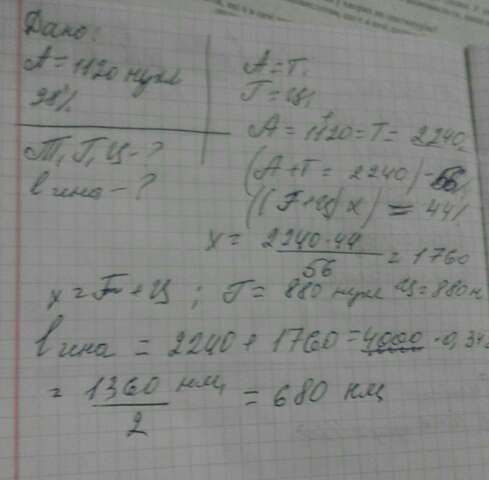 Дано:
А = 1120 нукл
28%
Т, Г, Ц - ?
l гена - ?
А = Т,
Г = Ц,
А = 1120 = Т = 2240
(А + Т = 2240) - 56%
((Г + Ц) х) = 44%
х = 2240 · 44 / 56 = 1760
х = Г + Ц ; Г = 880 нукл Ц = 880 н
l гена = 2240 + 1760 = 4000 · 0,34
= 1360 нм, / 2 = 680 нм